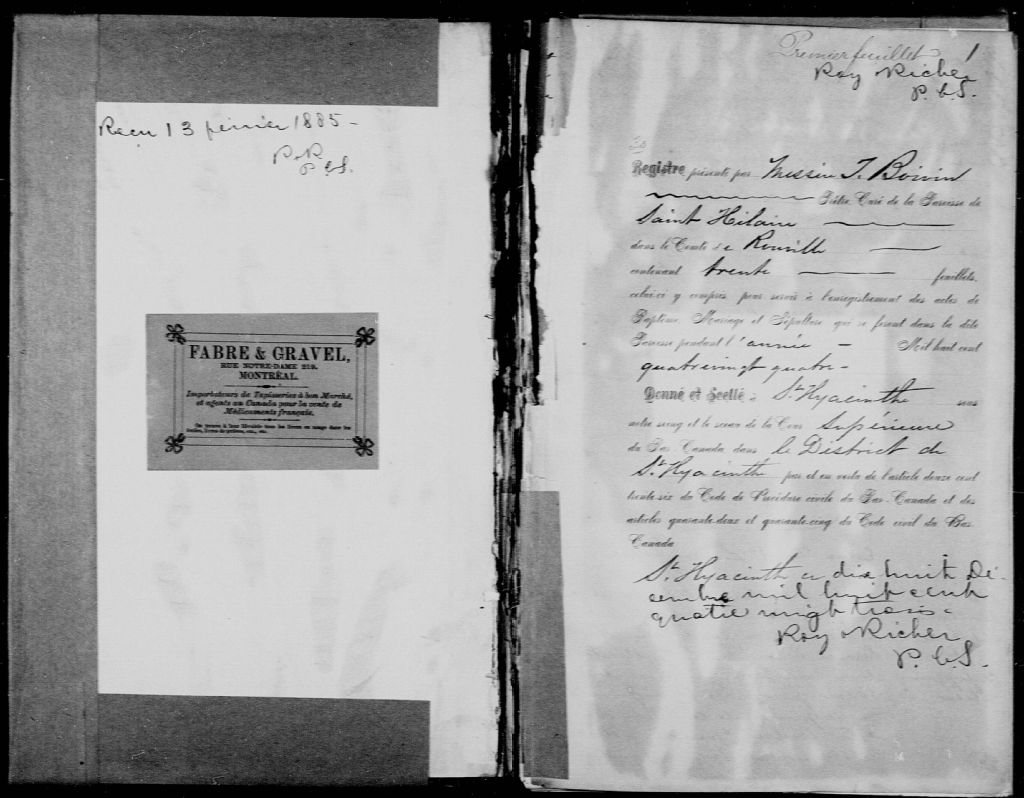 Recu 13 février 1885 -
R. & R.
P. C. S.
FABRE & GRAVEL,
RUE NOTRE-DAME 219.
MONTRÉAL.
Importateurs de Tapisseries à bon Marché,
et agents au Canada pour la vente de
Médicaments français.
On trouve à leur librairie tous les livres en usage dans les
écoles, livres de prières, etc., etc.
Premier feuillet 1
Roy & Richer
P. C. S.
Registre présenté par Messire T. Boivin
Prêtre, Curé de la Paroisse de
Saint Hilaire
dans le Comté de Rouville
contenant trente feuillets,
celui-ci y compris, pour servir à l'enregistrement des actes de
Baptême, Mariage et Sépulture qui se feront dans la dite
Paroisse pendant l'année - Mil huit cent
quatrevingt quatre -
Donné et Scellé à St. Hyacinthe sous
notre seing et le sceau de la Cour Supérieure
du Bas-Canada, dans le District de
St. Hyacinthe par et en vertu de l'article douze cent
trente-six du Code de Procédure civile du Bas-Canada et des
articles quarante-deux et quarante-cinq du Code civil du Bas-
Canada
St. Hyacinthe ce dix huit Dé-
cembre mil huit cent
quatre vingt trois -
Roy & Richer
P. C. S.